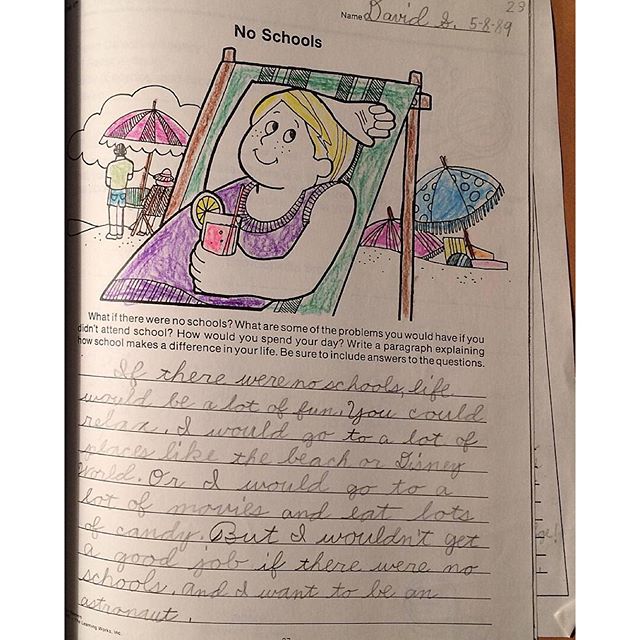 Name David S. 5-8-89
23
No Schools
What if there were no schools? What are some of the problems you would have if you
didn't attend school? How would you spend your day? Write a paragraph explaining
how school makes a difference in your life. Be sure to include answers to the questions.
If there were no schools, life
would be a lot of fun. You could
relax. I would go to a lot of
places like the beach or Disney
World. Or I would go to a
lot of movies and eat lots
of candy. But I wouldn't get
a good job if there were no
schools. and I want to be an
astronaut.
The Learning Works, Inc.